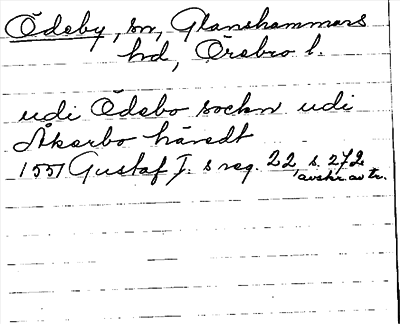 Ödeby, sn, Glanshammars
hd, Örebro l.
udi Ödebo sockn udi
Åkerbo häredt
1551 Gustaf I. s reg. 22 s. 272
avskr. av tr.